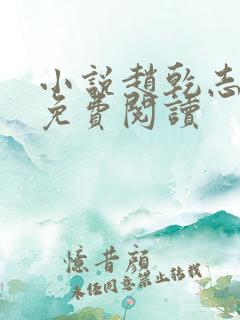 小說趙乾志
免費閱讀
憶昔顏
未經同意禁止轉載